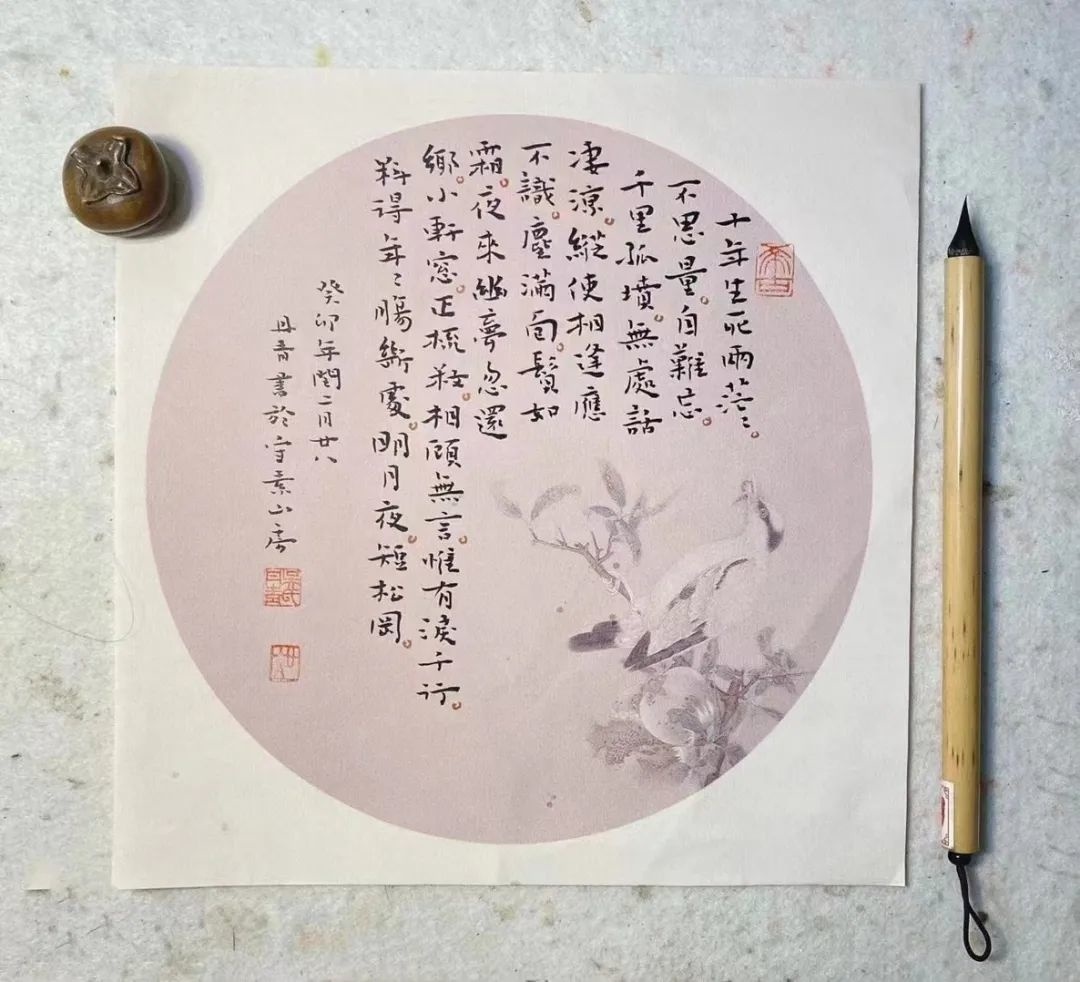 十年生死兩茫〻。
不思量。自難忘。
千里孤墳。無處話
凄涼。縱使相逢應
不識。塵滿面。鬢如
霜。夜來幽夢忽還
鄉。小軒窓。正梳妝。相顧無言。惟有淚千行。
料得年〻腸斷處。明月夜。短松岡。
癸卯年閏二月廿八
丹青書於守素山房